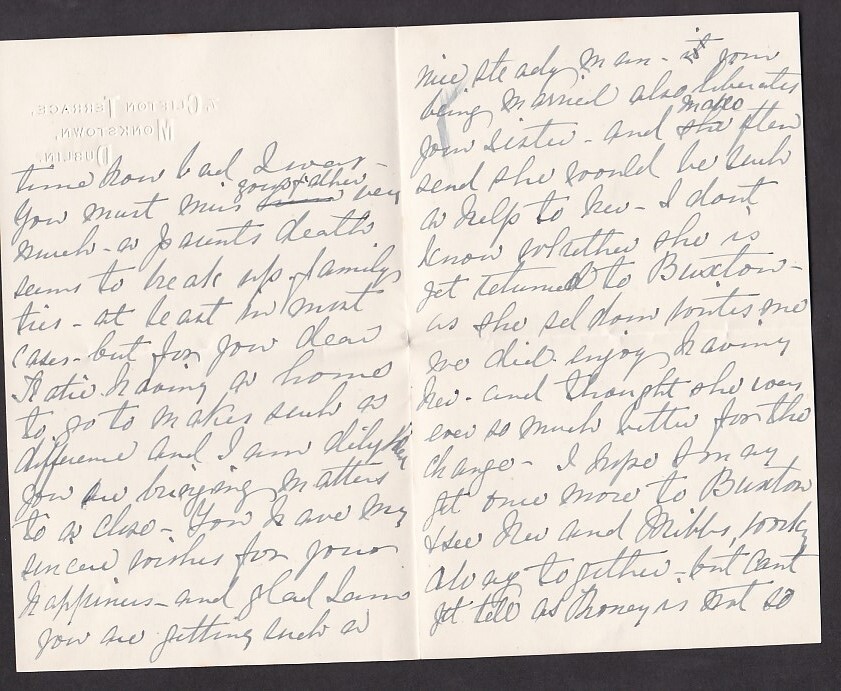 7. CLIFTON TERRACE,
MONKSTOWN,
DUBLIN.
time how bad I was -
You must miss your father very
much - a parents death
seems to break up family
ties - at least in most
cases - but for you dear
Katie having a home
to go to makes such a
difference and I am
you are bringing matters
to a close - You have my
sincere wishes for your
happiness - and glad I am
you are getting such a
nice steady man - it your
being married also liberates
your sister - and makes
she often
send she would be such
a help to her - I dont
know whether she is
yet returned to Buxton -
as she seldom writes me
we did enjoy having
her - and thought she was
ever so much better for the
change - I hope I may
get once more to Buxton
& see her and Mibbs, work
along together - but cant
yet tell as money is not so